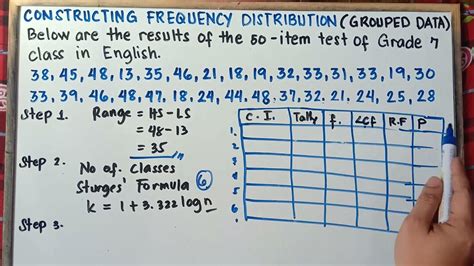 CONSTRUCTING FREQUENCY DISTRIBUTION (GROUPED DATA)
Below are the results of the 50-item test of Grade 7
class in English.
38, 45, 48, 13, 35, 46, 21, 18, 19, 32, 33, 31, 33, 19, 30
33, 39, 46, 48, 47, 18, 24, 44, 48, 37, 32, 21, 24, 25, 28
Step 1. Range = HS - LS
= 48-13
= 35
Step 2. No of. Classes
Sturges' Formula 6
k = 1 + 3.322 log n
Step 3.
C. I. Tally f. <Cf R.F P
1.
2.
3.
4.
5.
6.